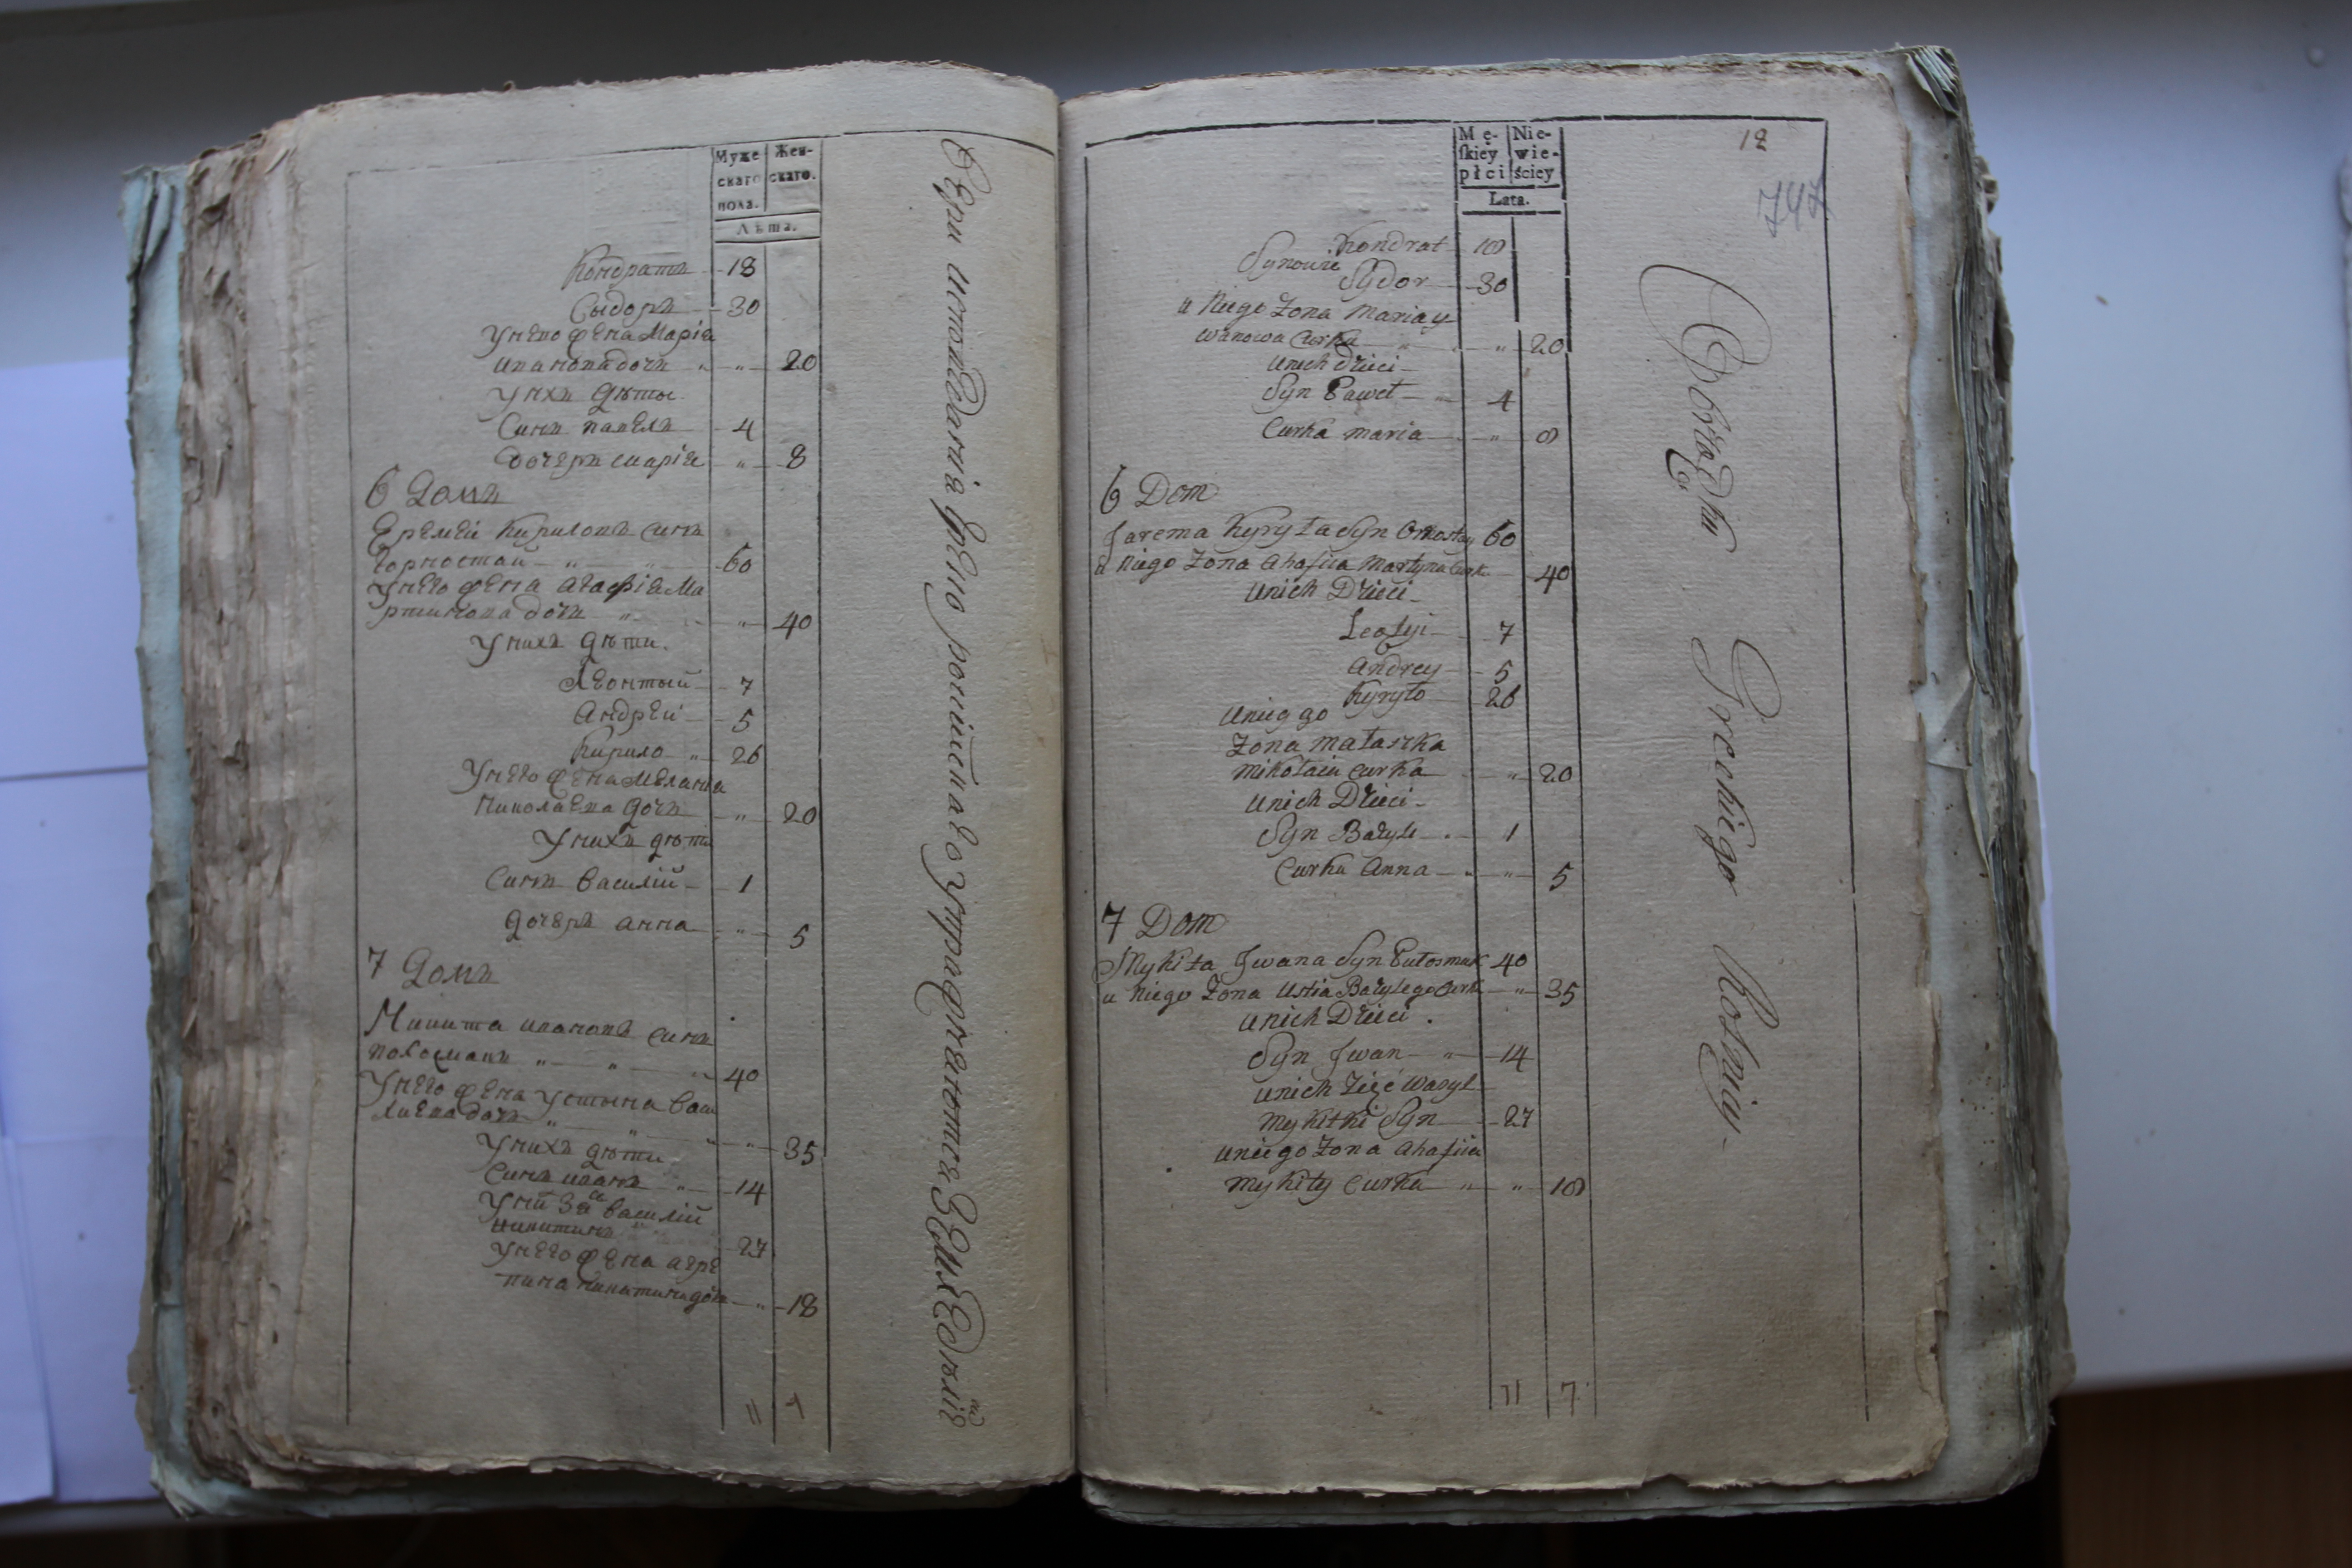 Муже- Жен-
скаго скаго.
пола.
Лѣта.
Кондратъ 18
Сыдоръ 30
Унего жена Марія
ивановадочъ " " 20
Унихъ дѣты
Синъ павелъ 4
дочеръ марія " 8
6 Домъ
Еремей Кириловъ синъ
Горностай " 60
Унего жена агафія Ма
ртиновадочъ " " 40
Унихъ дѣти.
Леонтый 7
Андрей 5
Кирило " 26
Унего жена Меланія
Николаева дочъ " 20
Унихъ дѣти
Синъ василій 1
дочеръ анна " 5
7 Домъ
Микита ивановъ синъ
" " " 40
Унего жена Устына Васи
лиева дочъ " " " " 35
Унихъ дѣти
Синъ иванъ " 14
василій
никитинъ 27
Унего жена агре
пина никитина доч " 18
11 7
вѣри исповеданія греко росийскаго
Mę- Nie-
skiey wie-
płci ściey
Lata.
12
747
Kondrat 18
Synowie
Sydor 30
u Niego Żona Maria y
wanowa Curka " " 20
unich Dzieci
Syn Paweł " 4
Curka maria " 8
6 Dom
Jarema Kyryła Syn 60
u Niego Żona Ahafiia Martyna Curka 40
unich Dzieci
7
Andrey 5
Kyryło 26
uniego
Żona Małaszka
Mikołaia Curka " 20
Unich Dzieci
Syn Bazyli 1
Curka Anna " " 5
7 Dom
Mykita Jwana Syn 40
u Niego Żona Ustia Bazylego Curk " 35
unich Dzieci.
Syn Jwan " 14
unich Zięć Wasyl
Mykitki Syn 27
uniego Żona Ahafiia
Mykity Curka " " 18
11 7
Obrządku Greckiego